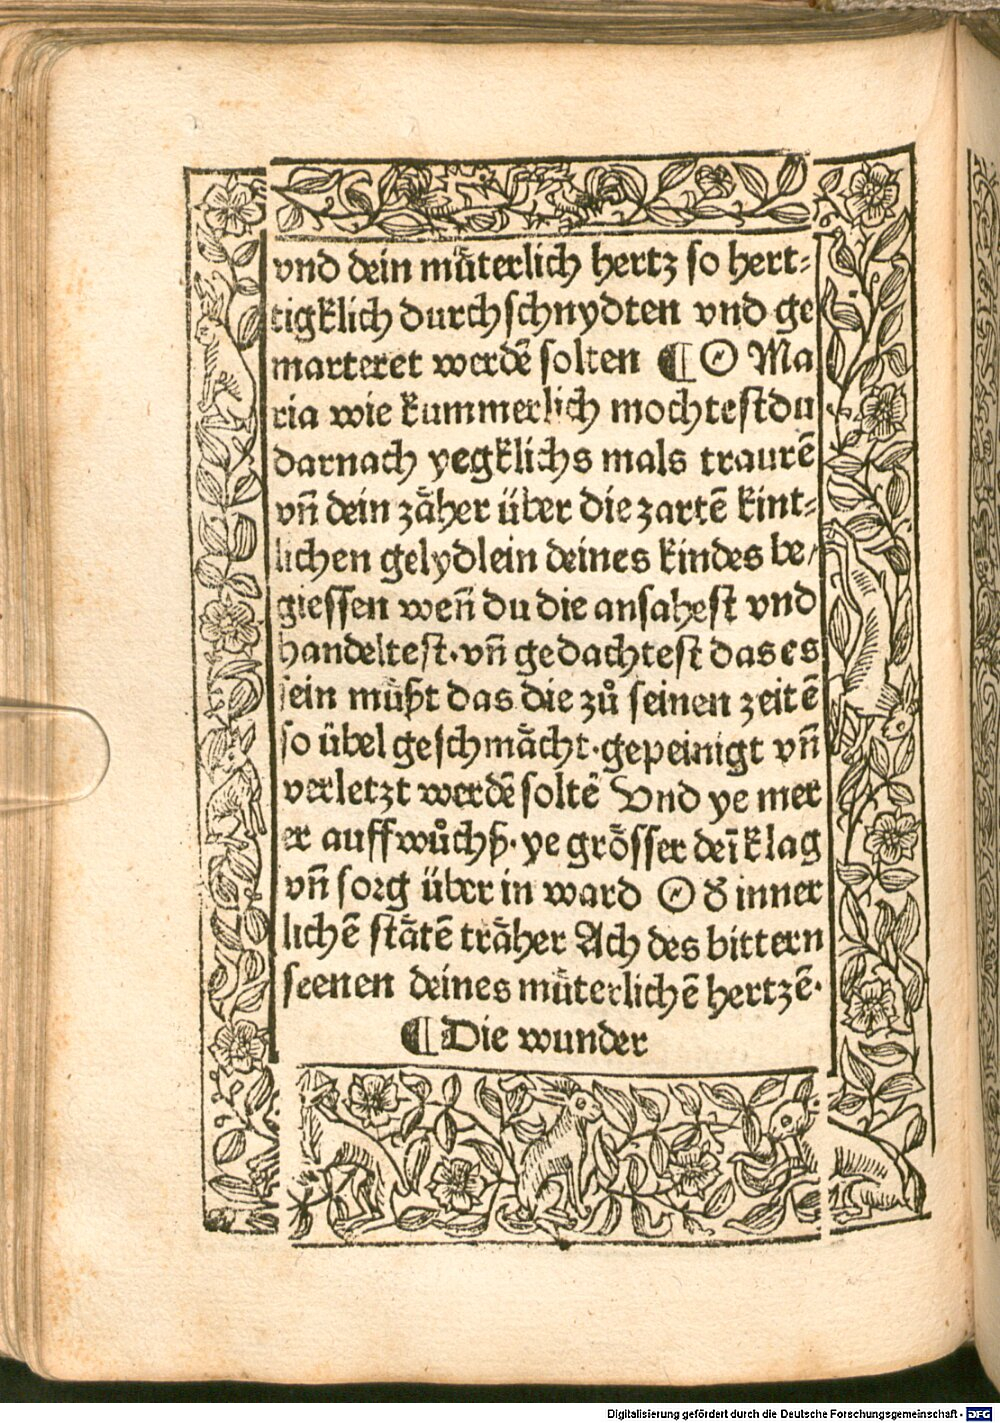 vnd dein mu̎terlich hertz so hert⸗
tigklich durchschnydten vnd ge
marteret werdē solten ¶ O Ma
ria wie kummerlich mochtestdu
darnach yegklichs mals traurē
vn̄ dein zaͤher uͤber die zartē kint⸗
lichen gelydlein deines kindes be/
giessen weñ du die ansahest vnd
handeltest·vn̄ gedachtest das es
sein muͤßt das die zuͦ seinen zeitē
so uͤbel geschmaͤcht·gepeinigt vn̄
verletzt werdē soltē Vnd ye mer
er auffwuͦchß·ye groͤsser deī klag
vn̄ sorg uͤber in ward O đ inner
lichē staͤtē traͤher Ach des bittern
seenen deines muͤterlichē hertzē·
¶ Die wunder
Digitalisierung gefördert durch die Deutsche Forschungsgemeinschaft - DFG